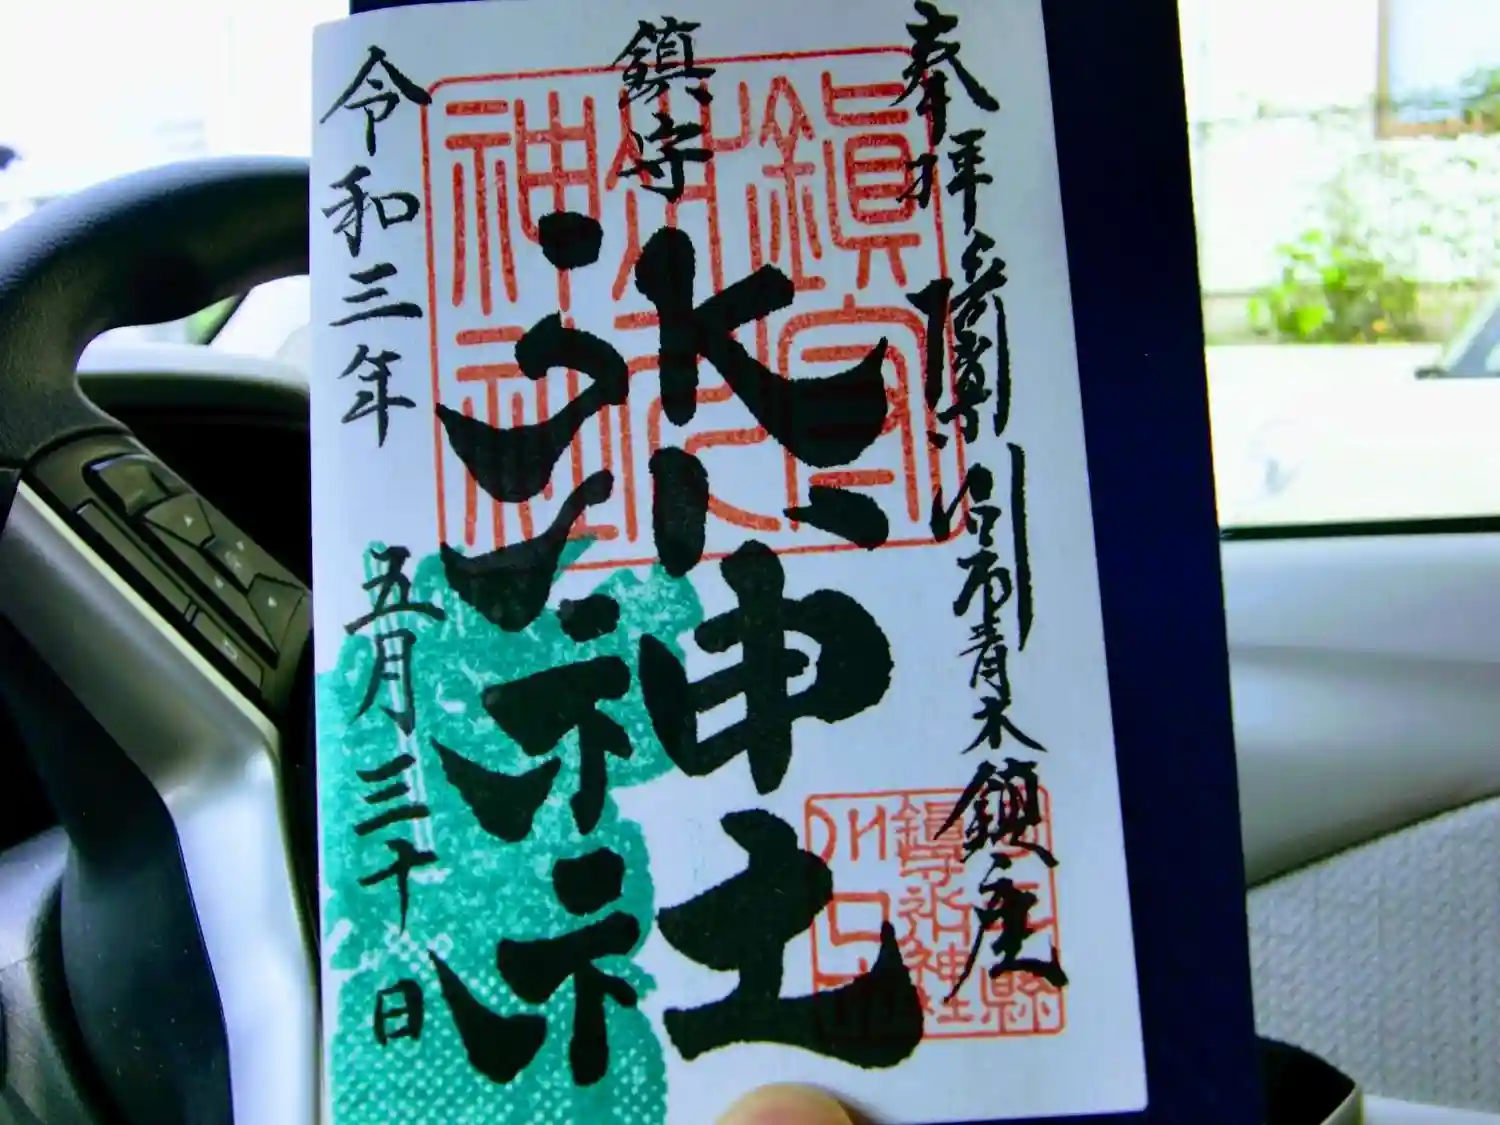 奉拝 埼玉縣川口市青木鎮座
鎮守
氷川神社
令和三年 五月三十日
鎮守
氷川
神社
埼玉縣
鎮守氷川神社
川口市